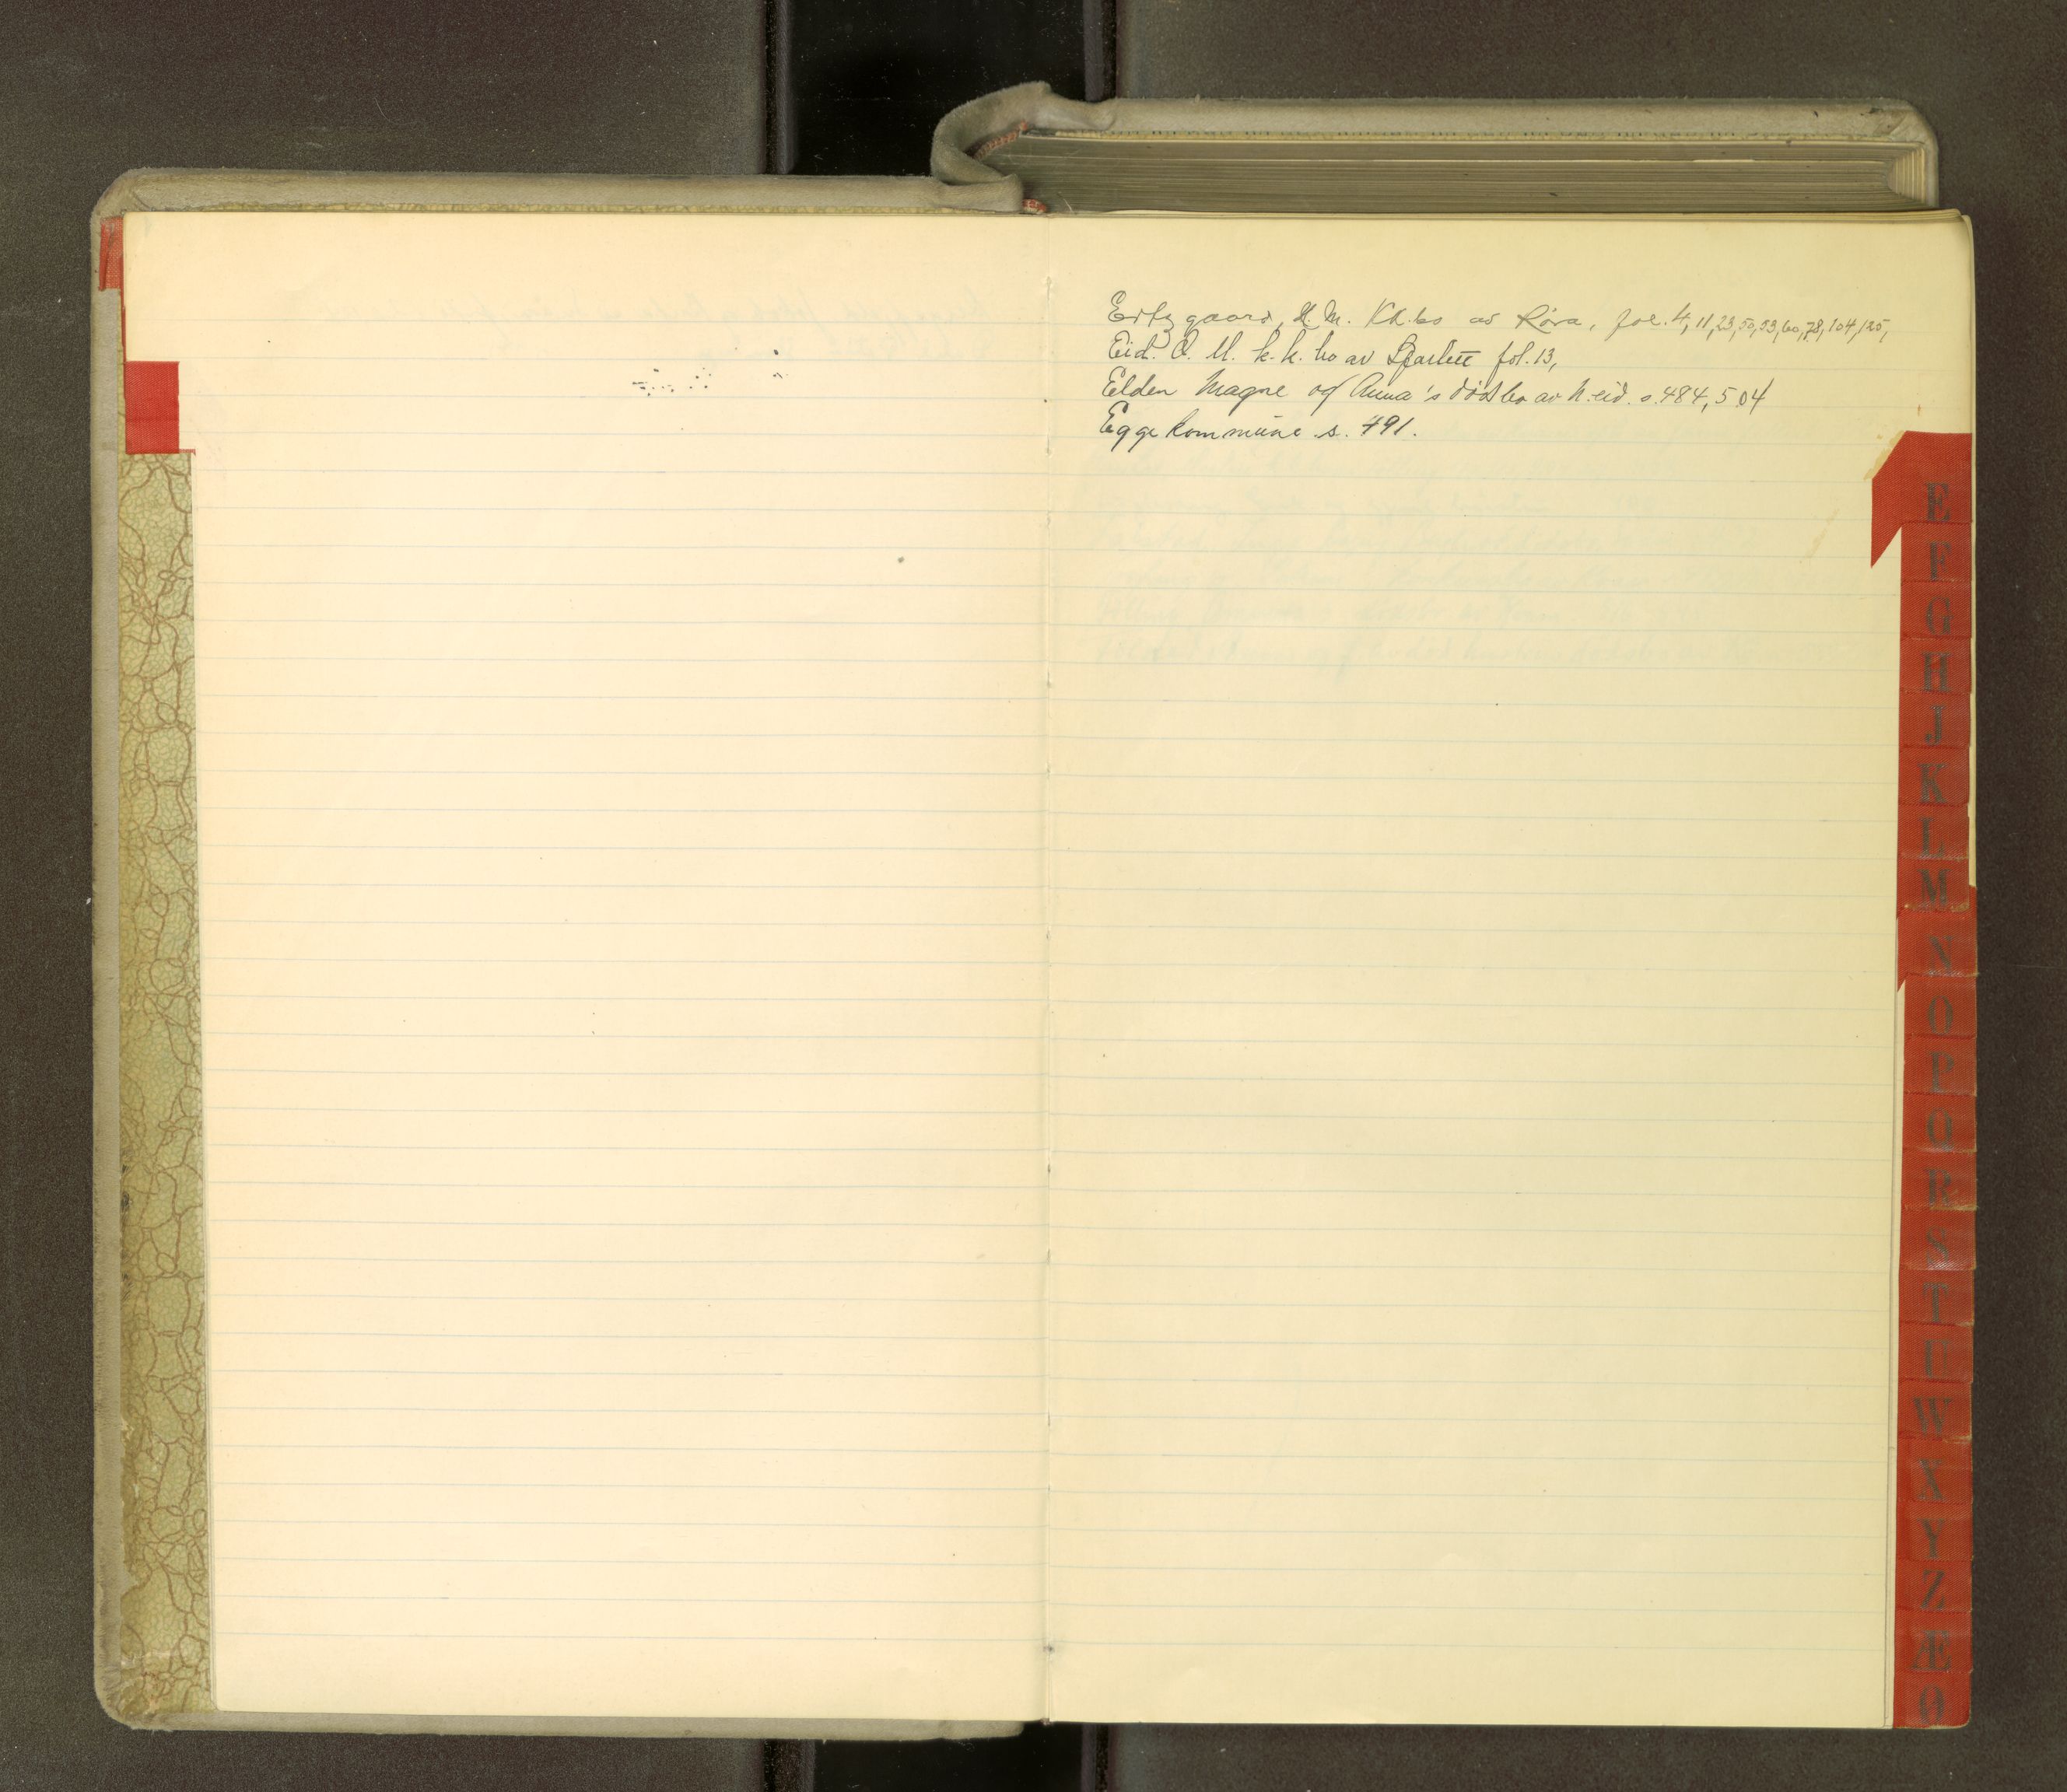 Eitzgaard, H. M. Kk.bo av Røra, fol. 4, 11, 23, 50, 53, 60, 78, 104, 125,
Eid. O. M. k.k. bo av fol. 13,
Elden Magne og Anna's dødsbo av N.eid. s. 484, 504
Egge kommune s. 491.
E
F
G
H
J
K
L
M
N
O
P
Q
R
S
T
U
W
X
Y
Z
Æ
Ø